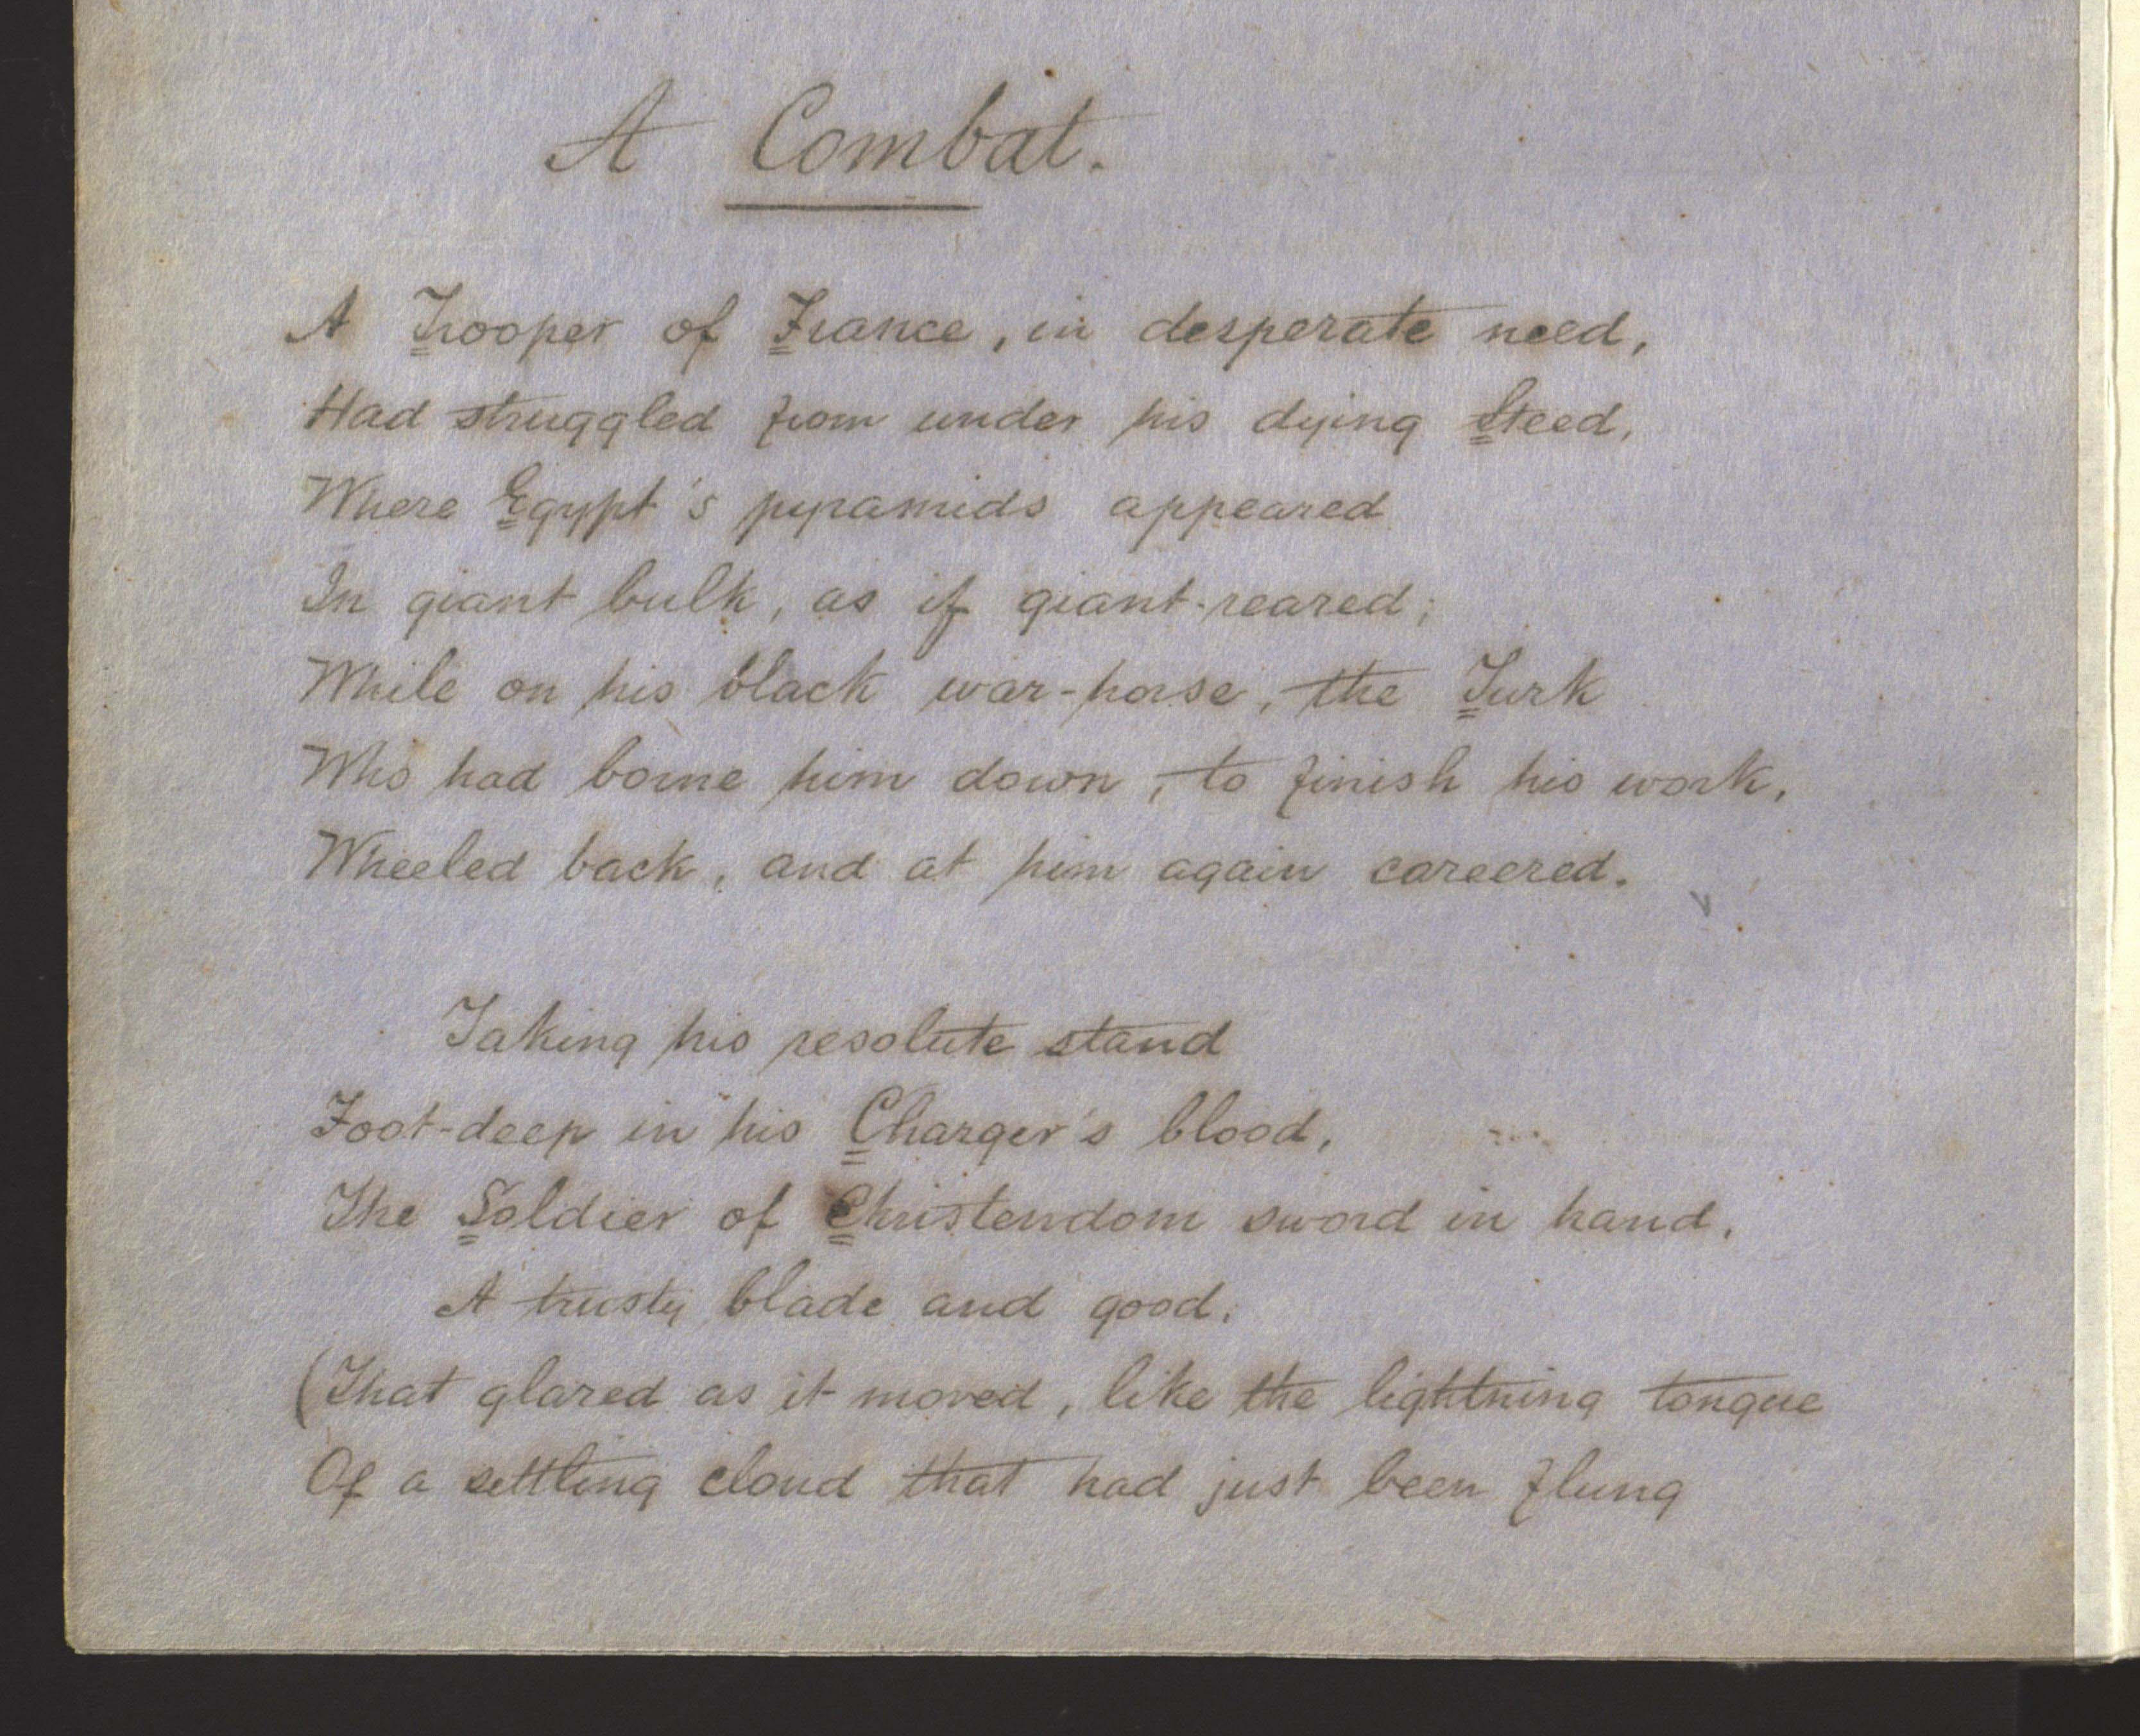 A Combat.
A Trooper of France, in desperate need,
Had struggled from under his dying Steed,
Where Egypt's pyramids appeared
In giant bulk, as if giant-reared;
While on his black war-horse, the Turk
Who had borne him down, to finish his work,
Wheeled back, and at him again careered.
Taking his resolute stand
Foot-deep in his Charger's blood,
The Soldier of Christendom sword in hand,
A trusty blade and good,
(That glared as it moved, like the lightning tongue
Of a settling cloud that had just been flung